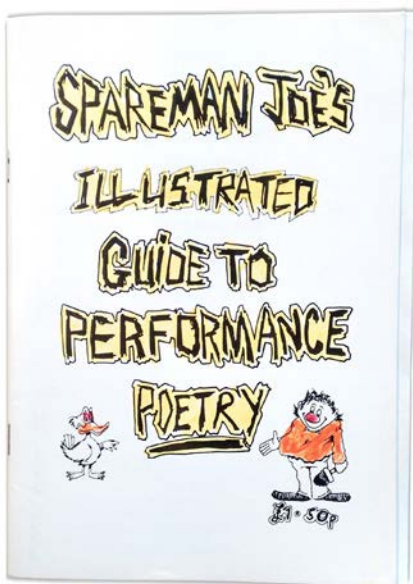 SPAREMAN JOE'S
ILLUSTRATED
GUIDE TO
PERFORMANCE
POETRY
£1.50p